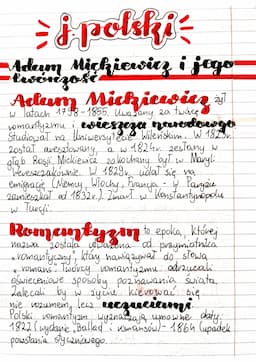 j. polski
Adam Mickiewicz i jego
twórczość
Adam Mickiewicz żył
w latach 1798-1855. Uważany za twórcę
romantyzmu i wieszcza narodowego.
Studiował na Uniwersytecie Wileńskim. W 1823r.
został aresztowany, a w 1824r. zesłany w
głąb Rosji. Mickiewicz zakochany był w Maryli
Wereszczakównie. W 1829r. udał się na
emigrację (Niemcy, Włochy, Francja - w Paryżu
zamieszkał od 1832r.) Zmarł w Konstantynopolu
w Turcji.
Romantyzm to epoka, której
nazwa została utworzona od przymiotnika
"romantyczny", który nawiązywał do słowa
"romans". Twórcy romantyzmu odrzucali
oświeceniowe sposoby poznawania świata.
Zalecali by w życiu kierować się
nie rozumem, lecz uczuciami.
Polski romantyzm wyznaczają umowne daty:
1822 (wydanie "Ballad" i romansów) - 1864 (upadek
powstania styczniowego.